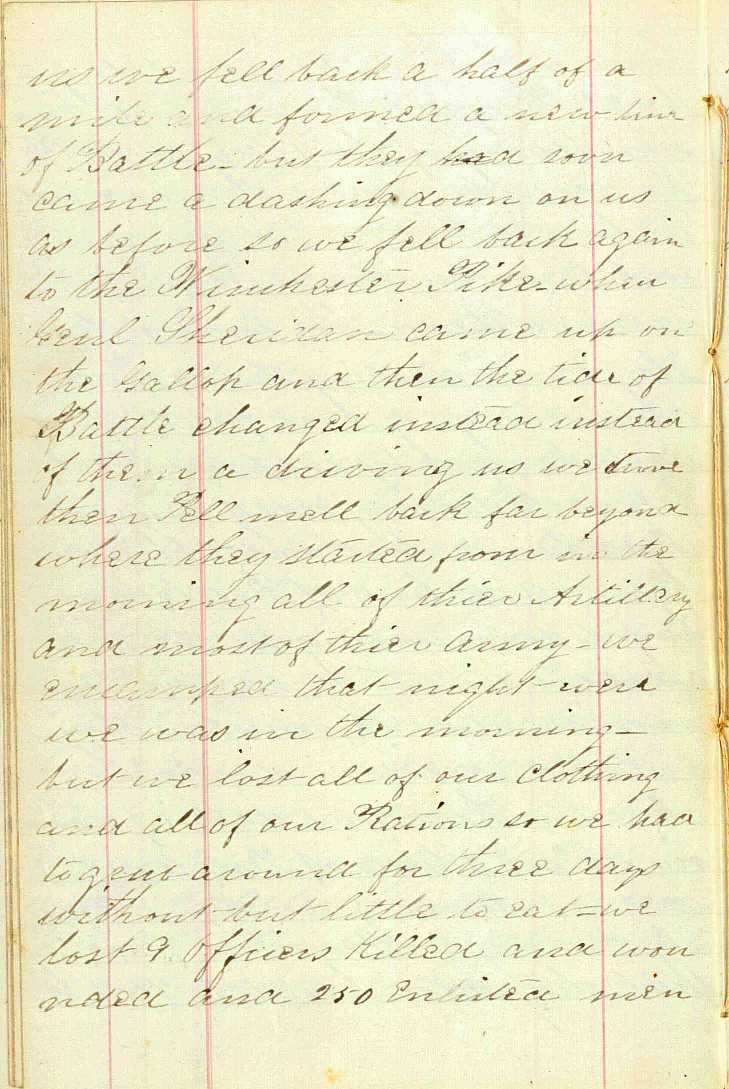 us we fell back a half of a
mile and formed a new line
of Battle - but they had soon
came a dashing down on us
as before so we fell back again
to the Winchester Pike - when
Genl Sheridan came up on
the Gallop and then the tide of
Battle changed instead instead
of them a driving us we drove
then Pell mell back far beyond
where they started from in the
morning all of thier Artillery
and most of thier Army - we
encamped that night were
we was in the morning -
but we lost all of our Clothing
and all of our Rations so we had
to grub around for three days
without but little to eat - we
lost 9. Officers Killed and wou
nded and 250 Enlisted men